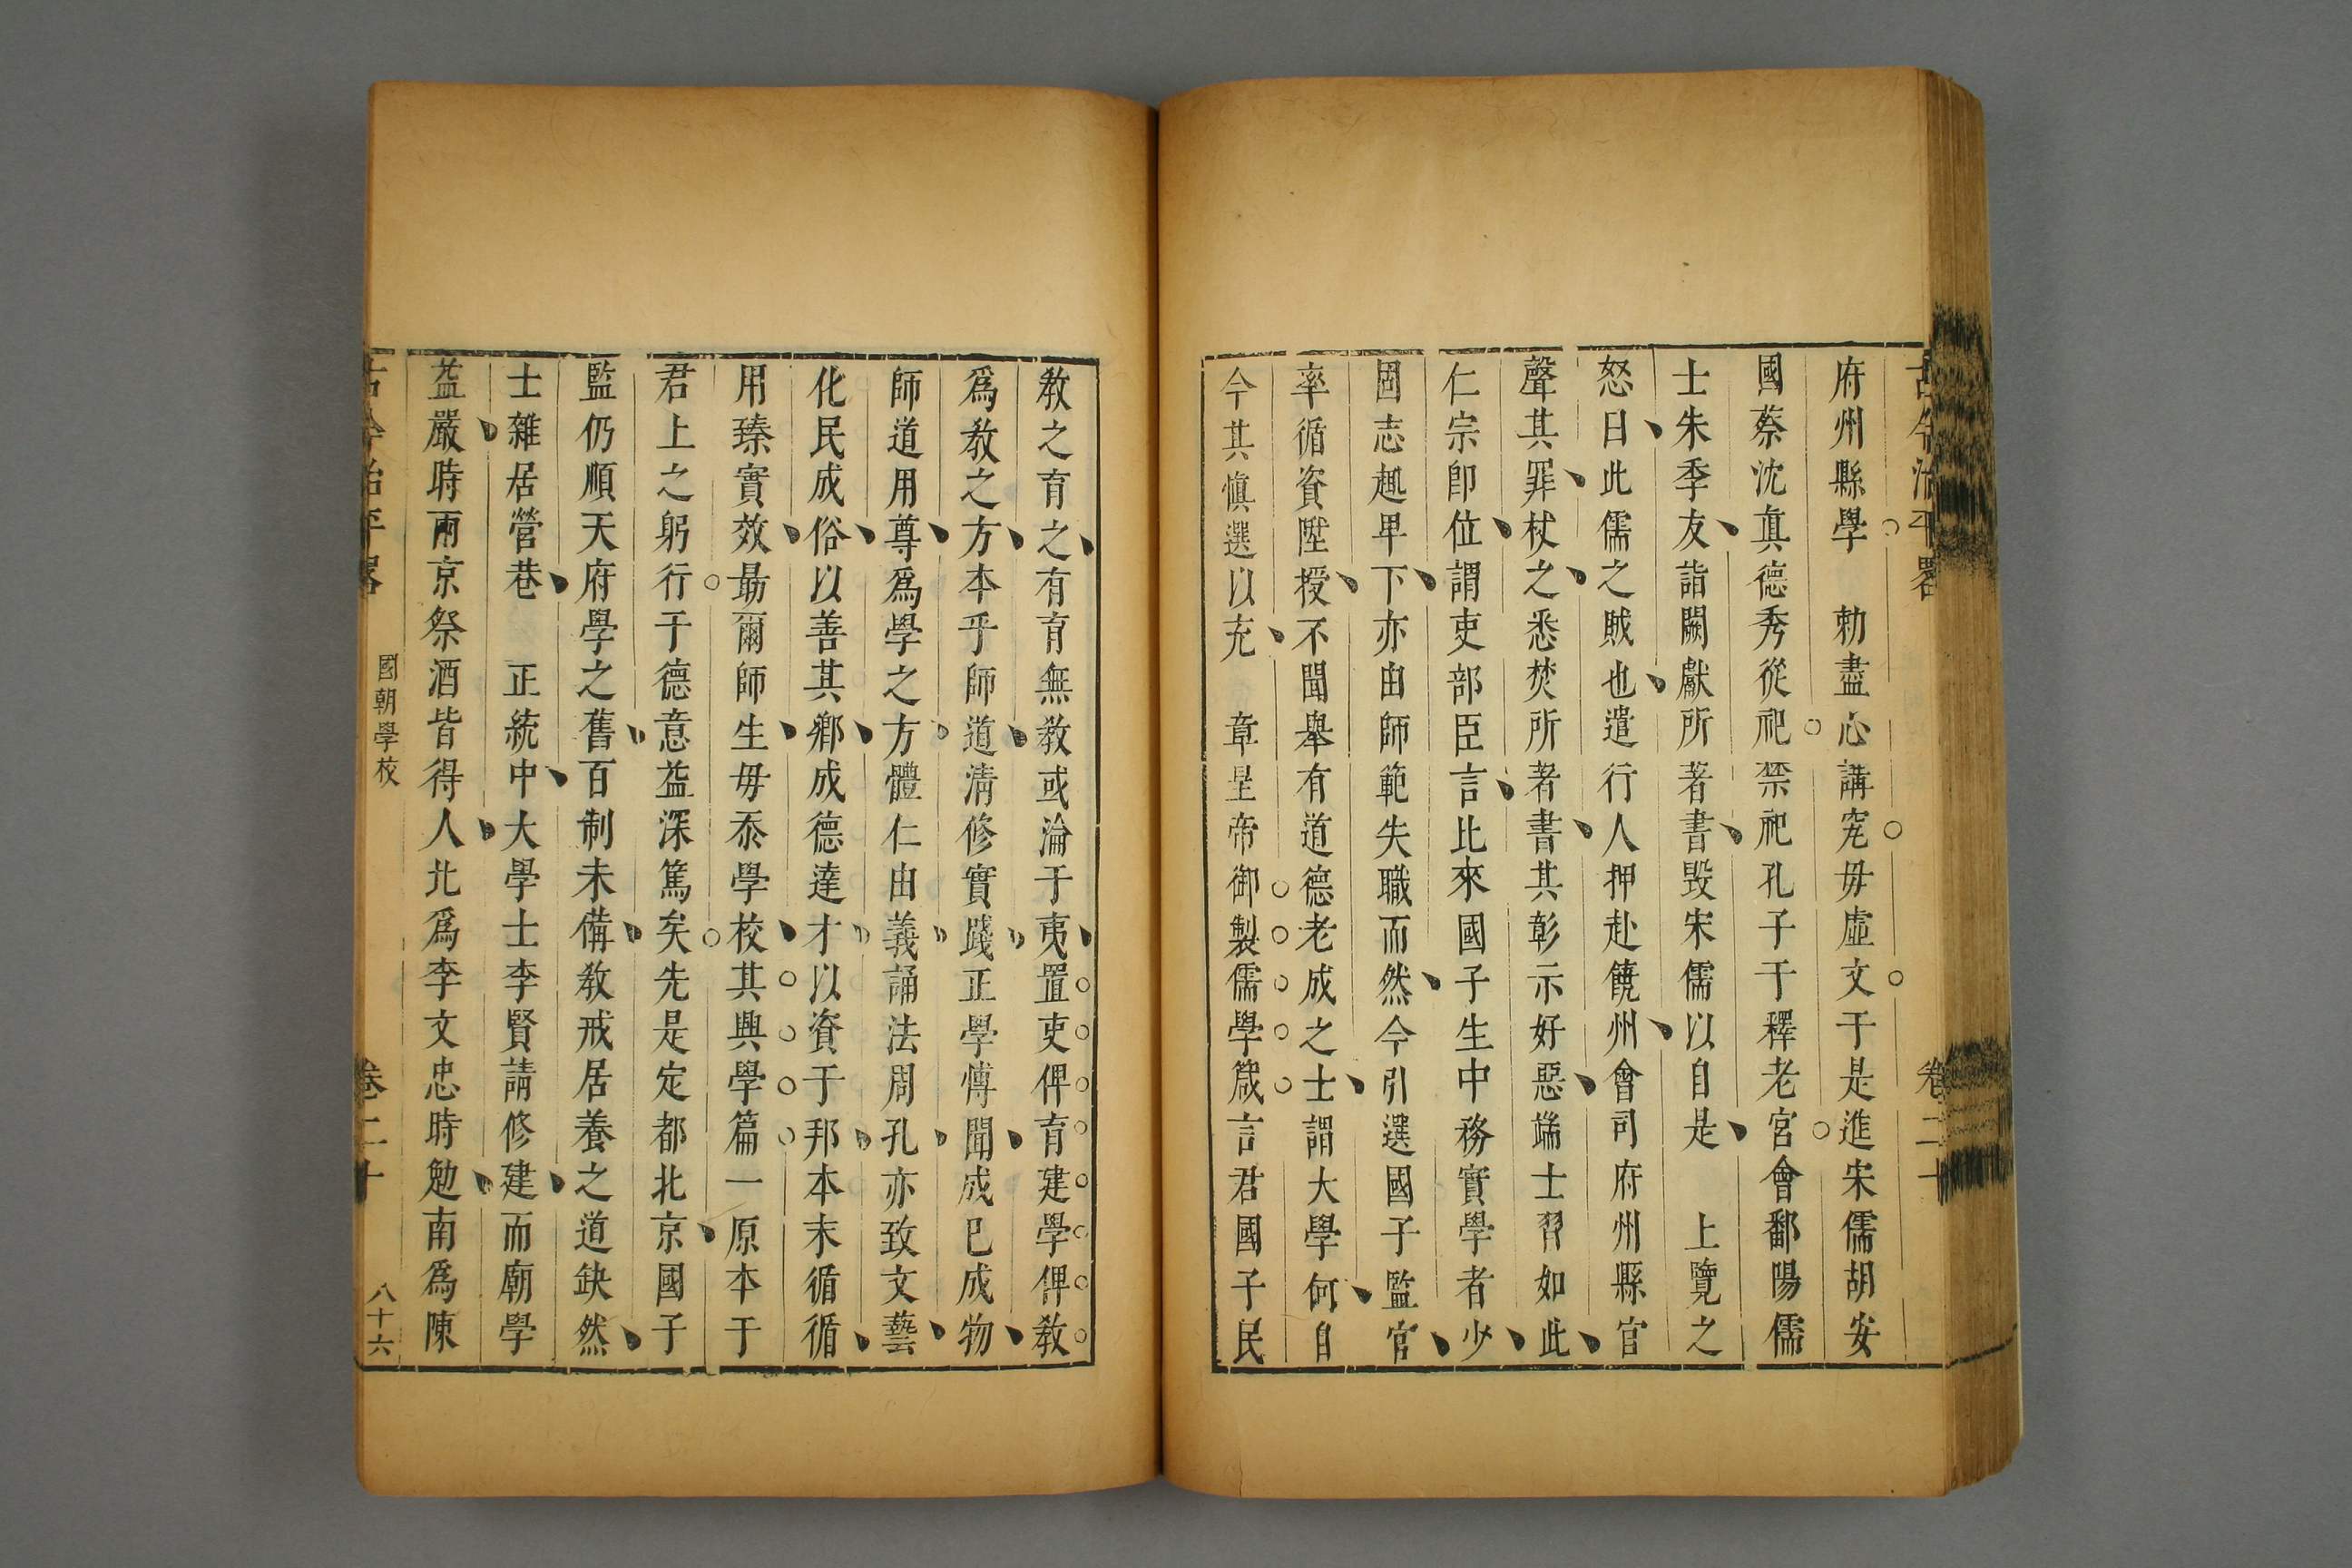 古今治平畧 卷二十
府州縣學 勅盡心講究毋虛文于是進宋儒胡安
國蔡沈真德秀從祀禁祀孔子于釋老宮會鄱陽儒
士朱季友詣闕獻所著書毀宋儒以自是 上覽之
怒曰此儒之賊也遣行人押赴饒州會司府州縣官
聲其罪杖之悉焚所著書其彰示好惡端士習如此
仁宗卽位謂吏部臣言比來國子生中務實學者少
固志趣卑下亦由師範失職而然今引選國子監官
率循資陞授不聞舉有道德老成之士謂大學何自
今其愼選以充 章皇帝御製儒學箴言君國子民
敎之育之有育無敎或淪于夷置吏俾育建學俾敎
爲敎之方本乎師道清修實踐正學愽聞成已成物
師道用尊爲學之方體仁由義誦法周孔亦致文藝
化民成俗以善其鄉成德達才以資于邦本末循循
用臻實效勗爾師生毋忝學校其興學篇一原本于
君上之躬行于德意益深篤矣先是定都北京國子
監仍順天府學之舊百制未備敎戒居養之道缺然
士雜居營巷 正統中大學士李賢請修建而廟學
益嚴時兩京祭酒皆得人北爲李文忠時勉南爲陳
古今治平畧 國朝學校 卷二十 八十六